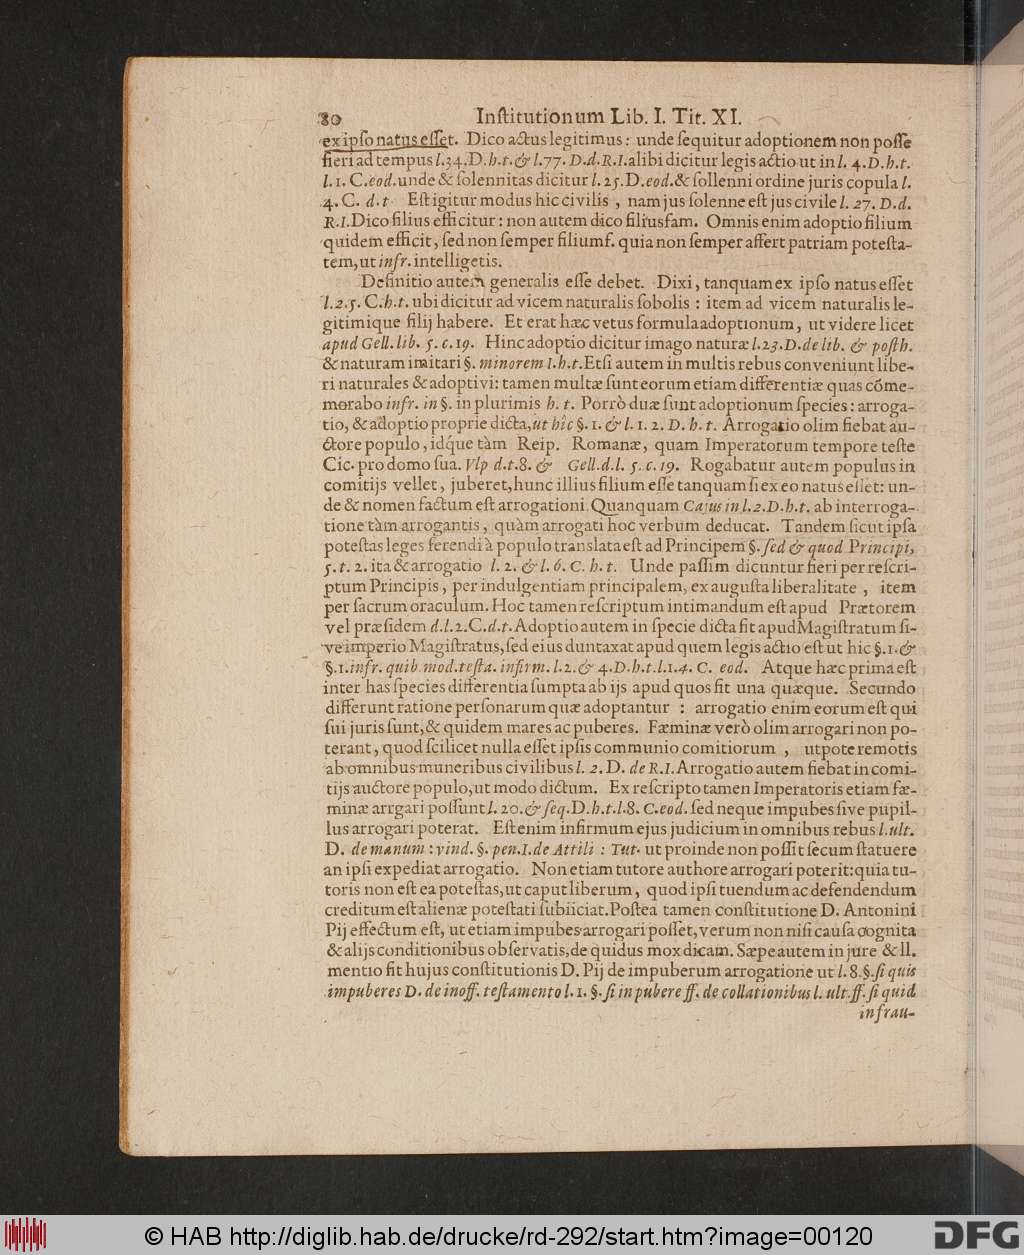 80 Inſtitutionum Lib. I. Tit. XI.
ex ipſo natus eſſet. Dico actus legitimus: unde ſequitur adoptionem non poſſe
fieri ad tempus l.34.D.h.t.& l.77. D.d.R.I.alibi dicitur legis actio ut in l. 4.D.h.t.
l.1. C.eod.unde & ſolennitas dicitur l.25.D.eod.& ſollenni ordine juris copula l.
4. C. d.t Eſt igitur modus hic civilis, nam jus ſolenne eſt jus civile l. 27. D.d.
R.I.Dico filius efficitur: non autem dico filiusfam. Omnis enim adoptio filium
quidem efficit, ſed non ſemper filiumf. quia non ſemper affert patriam poteſta-
tem,ut infr. intelligetis.
Definitio autem generalis eſſe debet. Dixi, tanquam ex ipſo natus eſſet
l.2.5. C.h.t. ubi dicitur ad vicem naturalis ſobolis: item ad vicem naturalis le-
gitimique filij habere. Et erat hæc vetus formula adoptionum, ut videre licet
apud Gell. lib. 5. c. 19. Hinc adoptio dicitur imago naturæ l.23.D.de lib. & poſth.
& naturam imitari §. minorem I.h.t.Etſi autem in multis rebus conveniunt libe-
ri naturales & adoptivi: tamen multæ ſunt eorum etiam differentiæ quas cõme-
morabo infr. in §. in plurimis h. t. Porrò duæ ſunt adoptionum ſpecies: arroga-
tio, & adoptio proprie dicta, ut hîc §. 1. & l. 1. 2. D. h. t. Arrogatio olim fiebat au-
ctore populo, idq́ue tàm Reip. Romanæ, quam Imperatorum tempore teſte
Cic. pro domo ſua. Vlp d.t.8. & Gell.d.l. 5.c.19. Rogabatur autem populus in
comitijs vellet, juberet,hunc illius filium eſſe tanquam ſi ex eo natus eſſet: un-
de & nomen factum eſt arrogationi Quanquam Cajus in l.2.D.h.t. ab interroga-
tione tàm arrogantis, quàm arrogati hoc verbum deducat. Tandem ſicut ipſa
poteſtas leges ferendi à populo translata eſt ad Principem §. ſed & quod Principi,
5.t. 2. ita & arrogatio l. 2. & l. 6. C. h. t. Unde paſſim dicuntur fieri per reſcri-
ptum Principis, per indulgentiam principalem, ex auguſta liberalitate, item
per ſacrum oraculum. Hoc tamen reſcriptum intimandum eſt apud Prætorem
vel præſidem d.l.2.C.d.t.Adoptio autem in ſpecie dicta fit apud Magiſtratum ſi-
ve imperio Magiſtratus,ſed eius duntaxat apud quem legis actio eſt ut hic §.1. &
§.1.infr. quib. mod.teſta. infirm. l.2. & 4.D.h.t.l.1.4. C. eod. Atque hæc prima eſt
inter has ſpecies differentia ſumpta ab ijs apud quos fit una quæque. Secundo
differunt ratione perſonarum quæ adoptantur: arrogatio enim eorum eſt qui
ſui juris ſunt,& quidem mares ac puberes. Fæminæ verò olim arrogari non po-
terant, quod ſcilicet nulla eſſet ipſis communio comitiorum, utpote remotis
ab omnibus muneribus civilibus l. 2. D. de R.I.Arrogatio autem fiebat in comi-
tijs auctore populo,ut modo dictum. Ex reſcripto tamen Imperatoris etiam fæ-
minæ arrgari poſſunt l. 20. & ſeq.D.h.t.l.8. C.eod. ſed neque impubes ſive pupil-
lus arrogari poterat. Eſt enim infirmum ejus judicium in omnibus rebus l.ult.
D. de manum: vind. §. pen.I.de Attili: Tut. ut proinde non poſſit ſecum ſtatuere
an ipſi expediat arrogatio. Non etiam tutore authore arrogari poterit:quia tu-
toris non eſt ea poteſtas,ut caput liberum, quod ipſi tuendum ac defendendum
creditum eſt alienæ poteſtati ſubiiciat.Poſtea tamen conſtitutione D. Antonini
Pij effectum eſt, ut etiam impubes arrogari poſſet, verum non niſi cauſa cognita
& alijs conditionibus obſervatis,de quidus mox dicam. Sæpe autem in jure & ll.
mentio fit hujus conſtitutionis D. Pij de impuberum arrogatione ut l. 8.§.ſi quis
impuberes D. de inoff. teſtamento l. 1. §. ſi in pubere ff. de collationibus l. ult. ff. ſi quid
in frau-
© HAB http://diglib.hab.de/drucke/rd-292/start.htm?image=00120
DFG